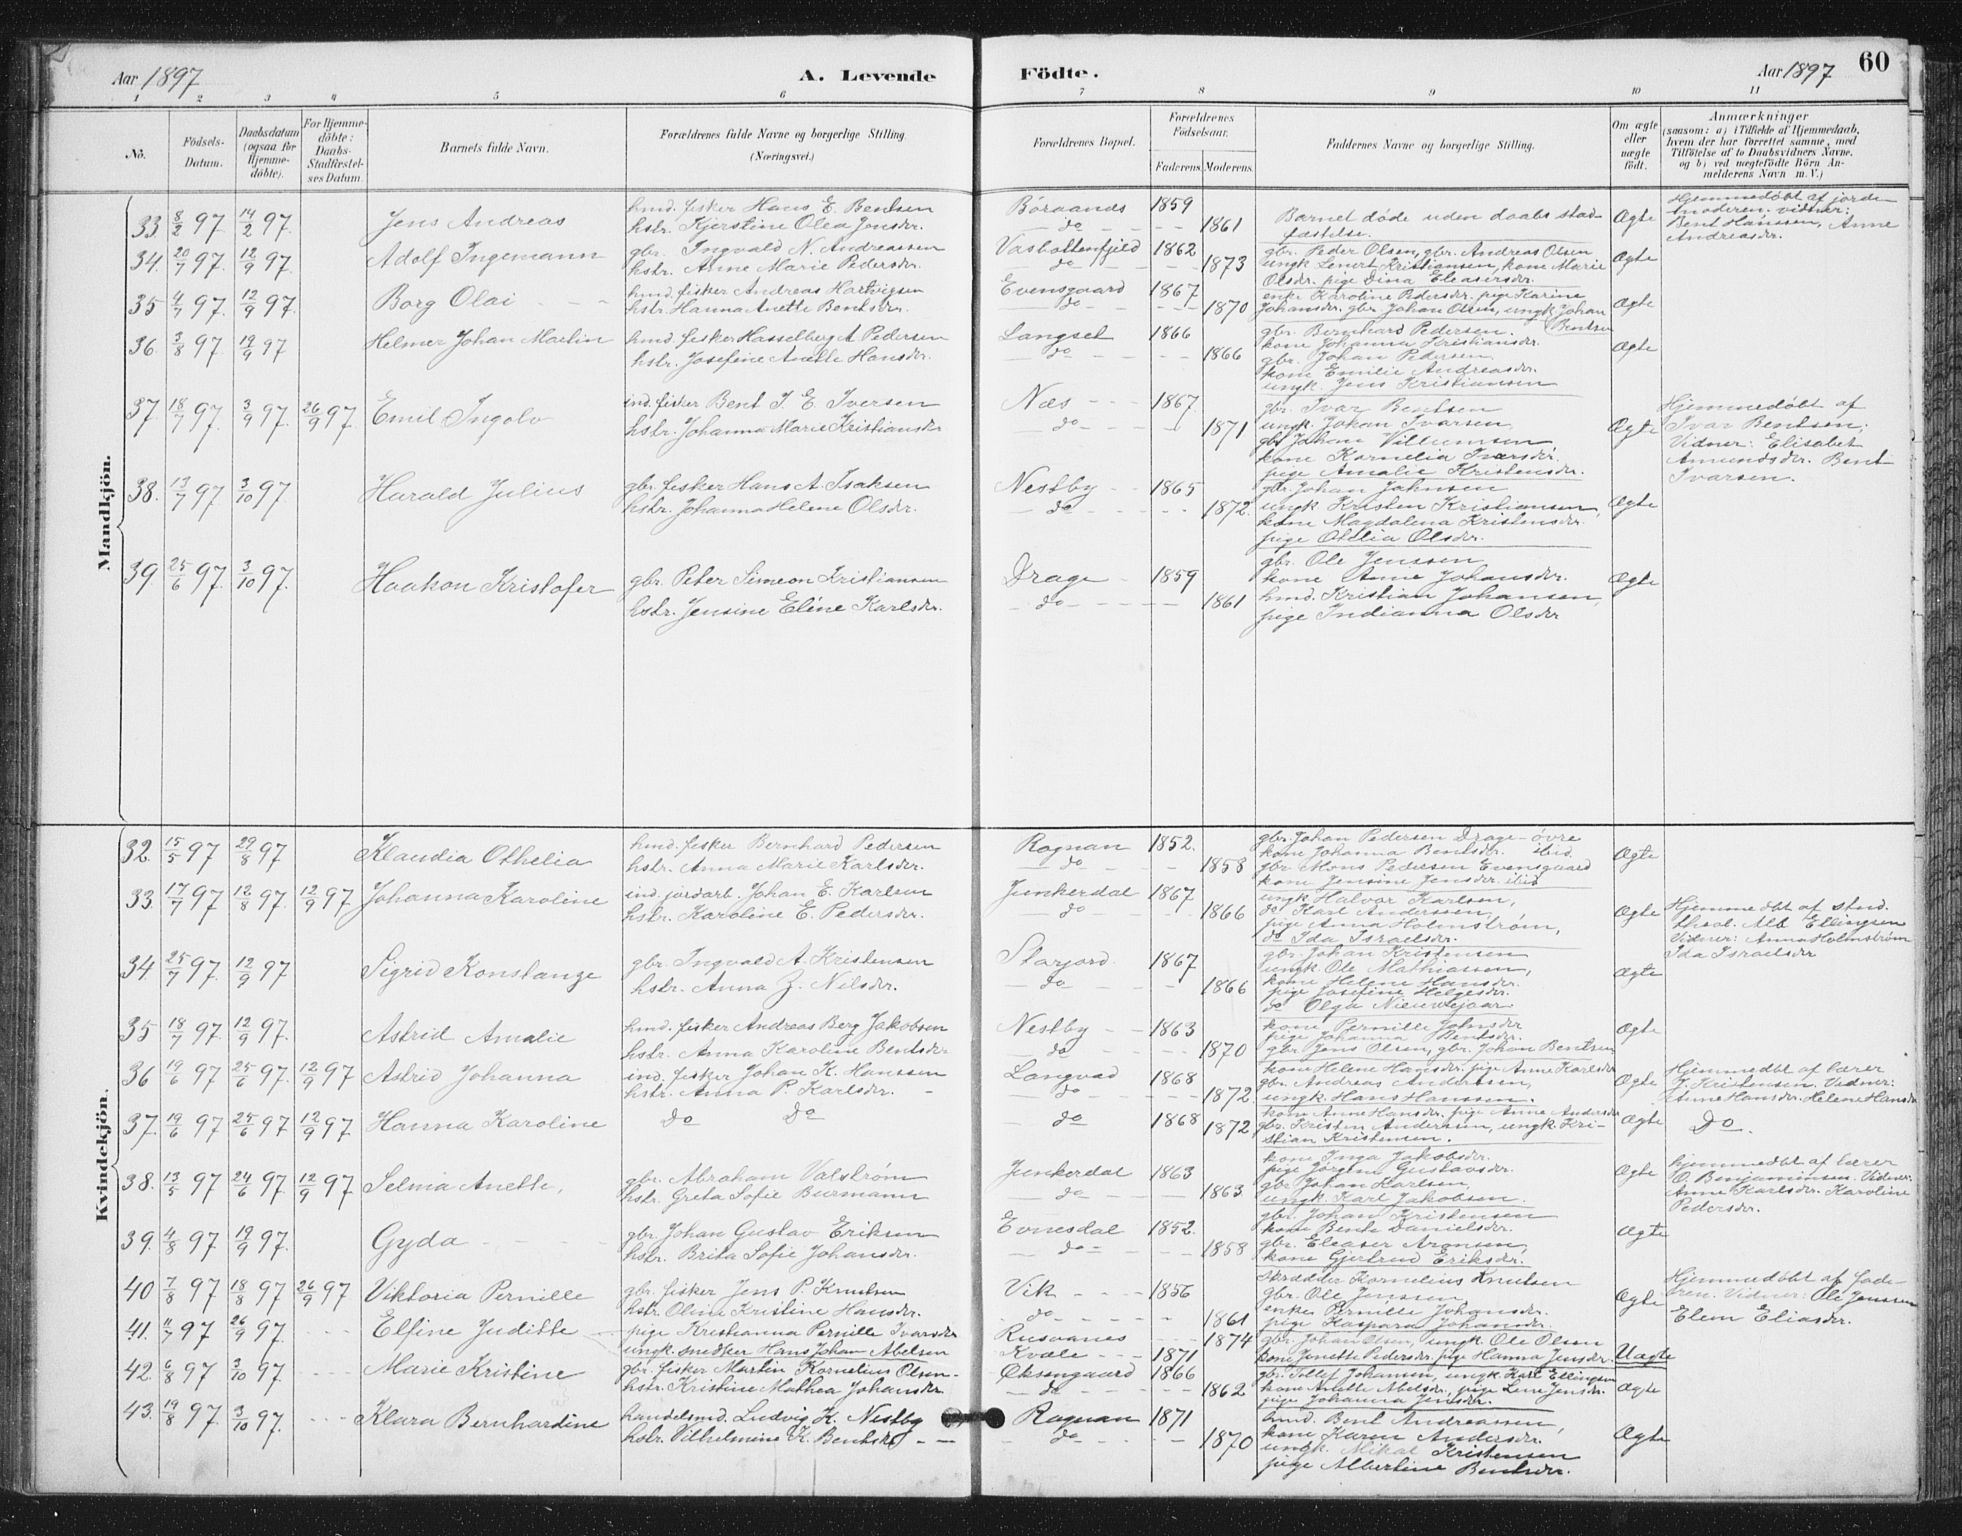 Aar 1897
A. Levende
Födte.
Aar 1897
60
1 2 3 4 5 6 7 8 9 10 11
No.
Födsels-
Datum.
Daabsdatum
(ogsaa for
Hjemme-
döbte).
For Hjemme-
döbte:
Daabs-
Stadfæstel-
ses Datum.
Barnets fulde Navn.
Forældrenes fulde Navne og borgerlige Stilling.
(Næringsvei.)
Forældrenes Bopæl.
Forældrenes
Födselsaar.
Faderens. Moderens.
Faddernes Navne og borgerlige Stilling.
Om ægte
eller
uægte
födt.
Anmærkninger
(saasom: a) i Tilfælde af Hjemmedaab,
hvem der har forrettet samme, med
Tilföielse af to Daabsvidners Navne,
og b) ved uægtefödte Börn An-
melderens Navn m. V.)
Mandkjön.
33. 8/2 97. 14/2 97. Jens Andreas
hmd. fisker Hans E. Bentsen
hstr. Kjerstine Olea Jensdr.
Böraanes 1859
do 1861
Barnet döde uden daabs stad
fæstelse.
Ægte
Hjemmedöbt af jorde-
moderen. vidner:
Bent Hanssen, Anne
Andreasdr.
34. 20/7 97. 12/9 97. Adolf Ingemann
gbr. Ingvald N. Andreassen
hstr. Anne Marie Pedersdr.
Vasbottenfjeld 1862
do 1873
gbr. Peder Olsen, gbr. Andreas Olsen
ungk. Lenert Kristiansen, kone Marie
Olsdr. pige Dina Eleasersdr.
Ægte
35 4/7 97. 12/9 97. Borg Olai
hmd. fisker Andreas Hartvigsen
hstr. Hanna Anette Bentsdr.
Evensgaard 1867
do 1870
enke Karoline Pedersdr. pige Karine
Johansdr. gbr. Johan Olsen, ungk. Johan
Bentsen
Ægte
36. 3/8 97 19/9 97 Helmer Johan Martin
hmd. fisker Hasselberg A Pedersen
hstr. Josefine Anette Hansdr.
Langset 1866
do 1866
gbr. Bernhard Pedersen.
kone Johanna Kristiansdr.
gbr. Johan Pedersen
kone Emilie Andreasdr.
ungk. Jens Kristiansen
Ægte
37. 18/7 97. 3/9 97. 26/9 97. Emil Ingolv
ind. fisker Bent J. E. Iversen
hstr. Johanna Marie Kristiansdr
Næs 1867
do 1871
gbr. Ivar Bentsen
ungk. Johan Ivarsen,
gbr Johan Villumsen,
kone Kornelia Ivarsdr.
pige Amalie Kristensdr.
Ægte
Hjemmedöbt af
Ivar Bentsen;
Vidner: Elisabet
Amundsdr. Bent
Ivarsen.
38. 13/7 97 3/10 97. Harald Julius
gbr. fisker Hans A. Isaksen
hstr. Johanna Helene Olsdr.
Nestby 1865
do 1872.
gbr. Johan Jahnsen
ungk Kristen Kristiansen,
kone Magdalena Kristensdr.
pige Otelia Olsdr.
Ægte
39 25/6 97. 3/10 97. Haakon Kristofer
gbr. Peter Simeon Kristiansen
hstr. Jensine Eline Karlsdr.
Drage 1859
do 1861
gbr. Ole Jenssen
kone Anne Johansdr.
hmd. Kristian Johansen,
pige Indianna Olsdr
Ægte
Kvindekjön.
32. 15/5 97 29/8 97 Klaudia Othelia
hmd. fisker Bernhard Pedersen
hstr. Anna Marie Karlsdr.
Rognan 1852.
do 1858
gbr. Johan Pedersen Drage-övre
kone Johanna Bentsdr. ibid.
gbr Mons Pedersen Evensgaard
kone Jensine Jensdr. ibid
Ægte
33. 17/7 97 12/8 97. 12/9 97 Johanna Karoline
ind. jordarb. Johan E. Karlsen
hstr. Karoline E. Pedersdr.
Junkerdal 1867
do 1866
ungk Halvor Karlsen,
do Karl Anderssen,
pige Anna Holmström,
do Ida Israelsdr.
Ægte
Hjemmedöbt af stud.
theol. Alb Ellingsen
Vidner: Anna Holmström
Ida Israelsdr
34. 25/7 97. 12/9 97 Sigrid Konstanze
gbr. Ingvald A. Kristensen
hstr. Anna Z. Nilsdr.
Storjord. 1867
do 1866
gbr. Johan Kristensen
ungk Ole Mathiassen,
kone Helene Hansdr.
pige Josefine Helgesdr.
do Olga Nieuwejaar
Ægte
35 18/7 97 12/9 97. Astrid Amalie
hmd. fisker Andreas Berg Jakobsen
hstr. Anna Karoline Bentsdr
Nestby 1863
do 1870
kone Pernille Johnsdr
pige Johanna Bentsdr.
gbr Jens Olsen, gbr. Johan Bentsen
Ægte
36 19/6 97 25/6 97. 12/9 97 Astrid Johanna
ind. fisker Johan K. Hanssen
hstr. Anna P. Karlsdr.
Langvad 1868
do 1872.
kone Helene Hansdr. pige Anne Karlsdr
gbr. Andreas Anderssen,
ungk. Hans Hanssen.
Ægte
Hjemmedöbt af lærer
J. Kristensen. Vidner:
Anne Hansdr. Helene Hansdr
37. 19/6 97 25/6 97 12/9 97 Hanna Karoline
do do
do 1868 1872
kone Anne Hansdr. pige Anne Andersdr
gbr. Kristen Anderssen, ungk. Kri-
stian Kristensen.
Ægte
Do.
38. 13/5 97 24/6 97. 12/9 97 Selma Anette,
gbr. Abraham Valström
hstr. Greta Sofie Burmann
Junkerdal 1863
do 1863
kone Inga Jakobsdr.
pige Jörgine Gustavsdr.
gbr Johan Karlsen,
ungk. Karl Jakobsen.
Ægte
hjemmedöbt af lærer
O. Benjaminsen. Vidner:
Anne Karlsdr. Karoline
Pedersdr.
39. 4/8 97 19/9 97. Gyda
gbr. Johan Gustav Eriksen
hstr. Brita Sofie Johansdr.
Evnesdal 1852.
do 1858
gbr. Johan Kristensen
kone Bente Danielsdr.
gbr. Eleaser Aronsen,
kone Gjertrud Eriksdr.
Ægte
40 7/8 97 18/8 97 26/9 97 Viktoria Pernille
gbr. fisker Jens P. Knutsen
hstr. Oline Kristine Hansdr.
Vik 1856
do 1861
Skrædder Kornelius Knutsen
gbr. Ole Jenssen
enke Pernille Johansdr.
pige Kaspara Johansdr.
Ægte
Hjemmedöbt af fade-
ren. Vidner: Ole Jenssen
Elem Eliasdr.
41. 11/7 97 26/9 97. Elfine Juditte
pige Kristianna Pernille Ivarsdr
ungk. snedker Hans Johan Abelsen
Rusaanes 1874
Kvæle 1871
gbr. Johan Olsen, ungk. Ole Olsen
kone Jonette Pedersdr. pige Hanna Jensdr.
Uægte
42. 6/8 97 3/10 97. Marie Kristine
gbr. fisker Martin Kornelius Olsen
hstr. Kristine Mathea Johansdr
Öksengaard 1866
do 1862
gbr. Tollef Johansen, ungk. Karl Ellingsen
kone Anette Abelsdr, pige Lene Jensdr.
pige Johanna Jensdr.
Ægte
43. 19/8 97. 3/10 97. Klara Bernhardine
handelsmd. Ludvig K. Nestby
hstr. Vilhelmine K. Bentsdr
Rognan 1871
do 1870
hmd. Bent Andreassen,
kone Karen Andersdr.
ungk. Mikal Kristensen
pige Albertine Bentsdr.
Ægte